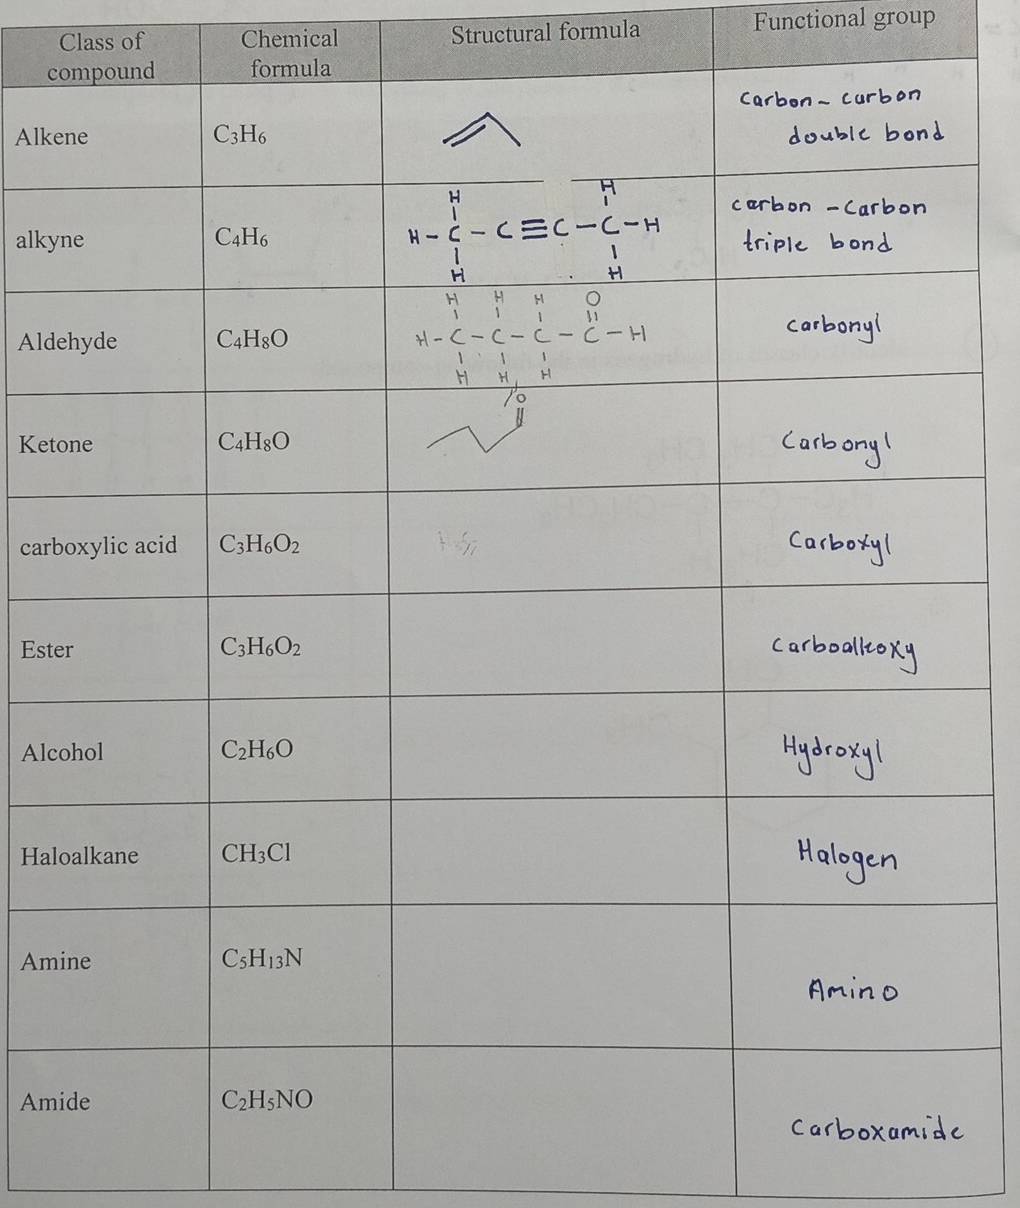 Class of compound
Chemical formula
Structural formula
Functional group
Alkene
C₃H₆
carbon - carbon
double bond
alkyne
C₄H₆
H H
H - C - C ≡ C - C - H
H H
carbon - carbon
triple bond
Aldehyde
C₄H₈O
H H H O
H - C - C - C - C - H
H H H
carbonyl
Ketone
C₄H₈O
O
Carbonyl
carboxylic acid
C₃H₆O₂
Carboxyl
Ester
C₃H₆O₂
carboalkoxy
Alcohol
C₂H₆O
Hydroxyl
Haloalkane
CH₃Cl
Halogen
Amine
C₅H₁₃N
Amino
Amide
C₂H₅NO
carboxamide